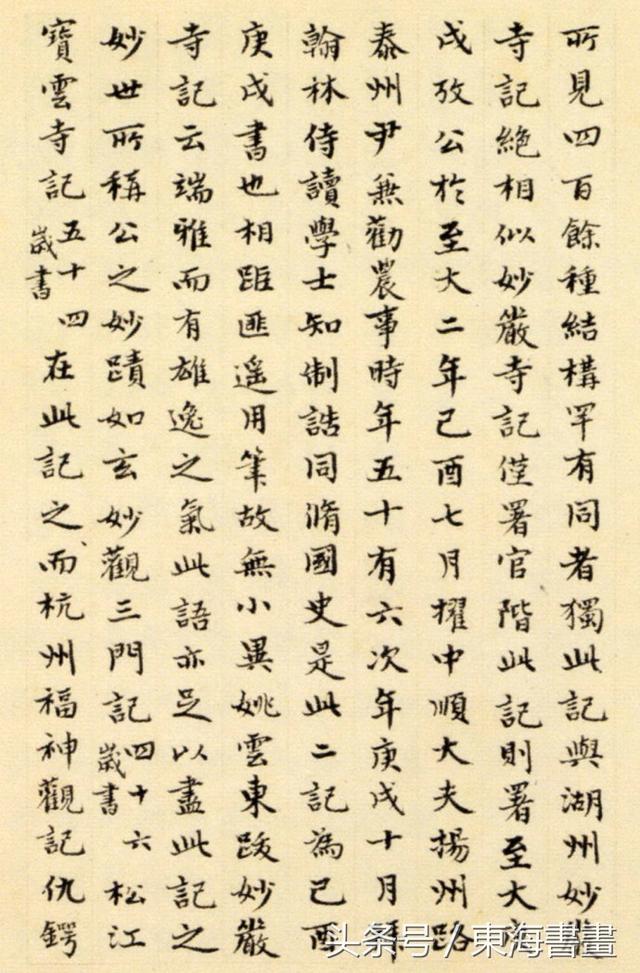 所見四百餘種結構罕有同者獨此記與湖州妙嚴
寺記絕相似妙嚴寺記僅署官階此記則署至大庚
戌攷公於至大二年己酉七月擢中順大夫揚州路
泰州尹兼勸農事時年五十有六次年庚戌十月拜
翰林侍讀學士知制誥同脩國史是此二記為己酉
庚戌書也相距匪遙用筆故無小異姚雲東跋妙嚴
寺記云端雅而有雄逸之氣此語亦足以盡此記之
妙世所稱公之妙蹟如玄妙觀三門記四十六歲書松江
寶雲寺記五十四歲書在此記之而杭州福神觀記仇鍔
头条号/東海書畫